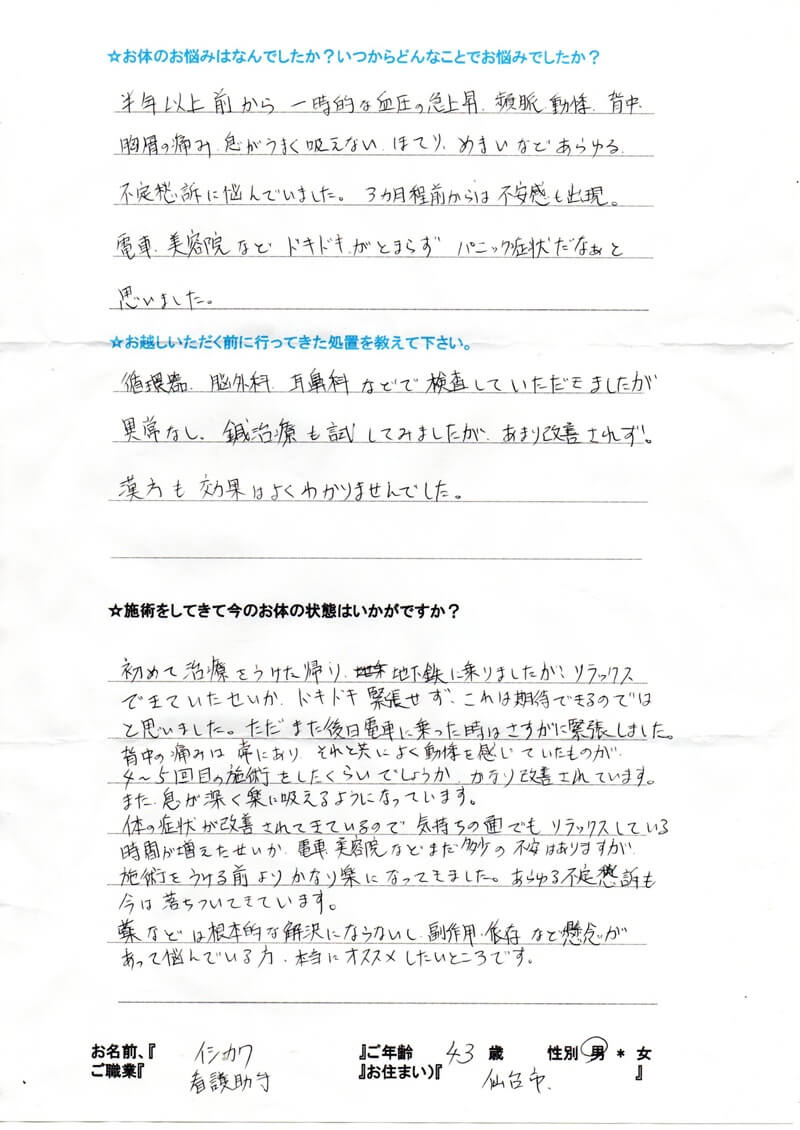 ☆お体のお悩みはなんでしたか？いつからどんなことでお悩みでしたか？
半年以上前から 一時的な血圧の急上昇、頻脈、動悸、背中、
胸肩の痛み、息がうまく吸えない、ほてり、めまいなどあらゆる
不定愁訴に悩んでいました。3カ月程前からは不安感も出現。
電車、美容院など ドキドキがとまらず パニック症状だなぁと
思いました。
☆お越しいただく前に行ってきた処置を教えて下さい。
循環器、脳外科、耳鼻科などで検査していただきましたが
異常なし。鍼治療も試してみましたが、あまり改善されず。
漢方も効果はよくわかりませんでした。
☆施術をしてきて今のお体の状態はいかがですか？
初めて治療をうけた帰り、地下鉄に乗りましたが、リラックス
できていたせいか、ドキドキ緊張せず、これは期待できるのでは
と思いました。ただまた後日電車に乗った時はさすがに緊張しました。
背中の痛みは常にあり、それと共によく動悸を感じていたものが、
4～5回目の施術をしたくらいでしょうか、かなり改善されています。
また、息が深く楽に吸えるようになっています。
体の症状が改善されてきているので気持ちの面でもリラックスしている
時間が増えたせいか、電車、美容院などまだ多少の不安はありますが、
施術をうける前よりかなり楽になってきました。あらゆる不定愁訴も
今は落ちついてきています。
薬などは根本的な解決にならないし、副作用、依存など懸念が
あって悩んでいる方、本当にオススメしたいところです。
お名前、『 イシカワ 』ご年齢 43 歳 性別 男 * 女
ご職業『 看護助手 』お住まい）『 仙台市、 』